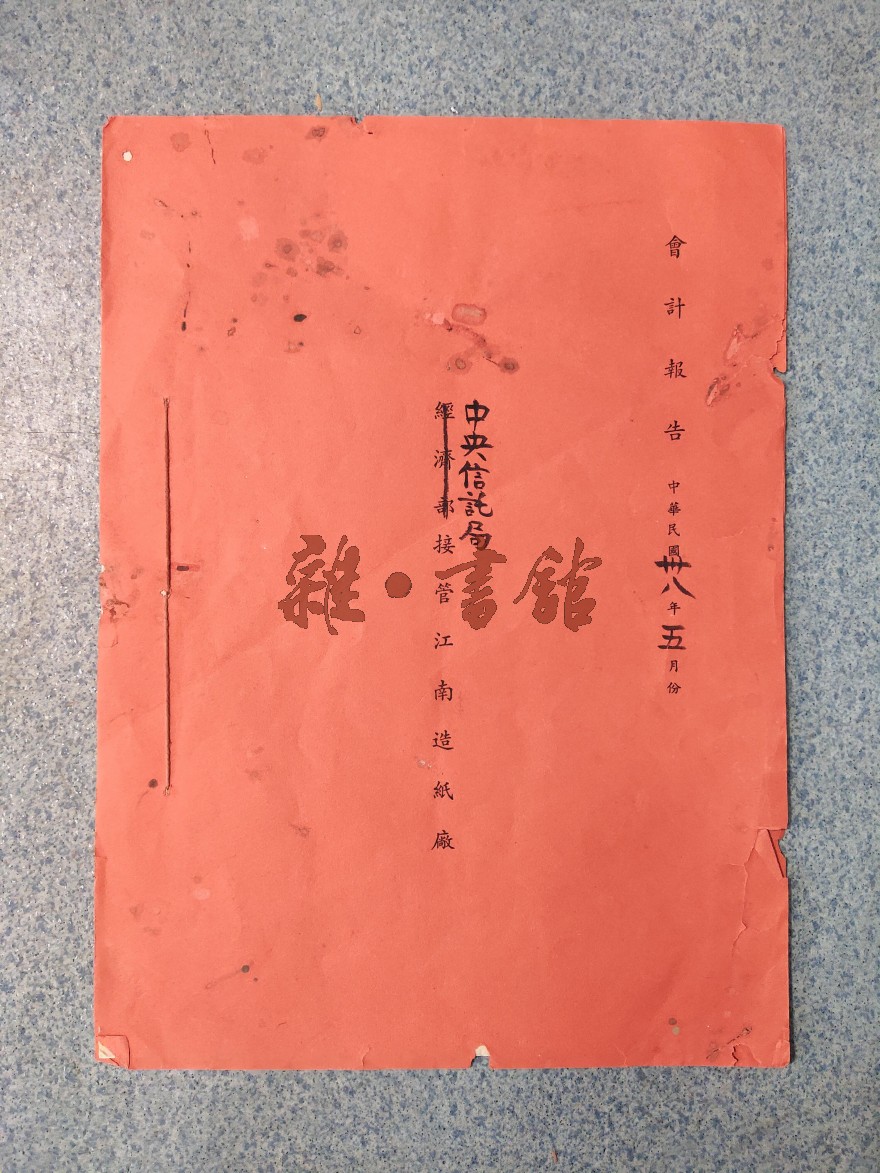 會計報告 中華民國卅八年五月份
中央信託局
經濟部接管江南造紙廠
雜·書館